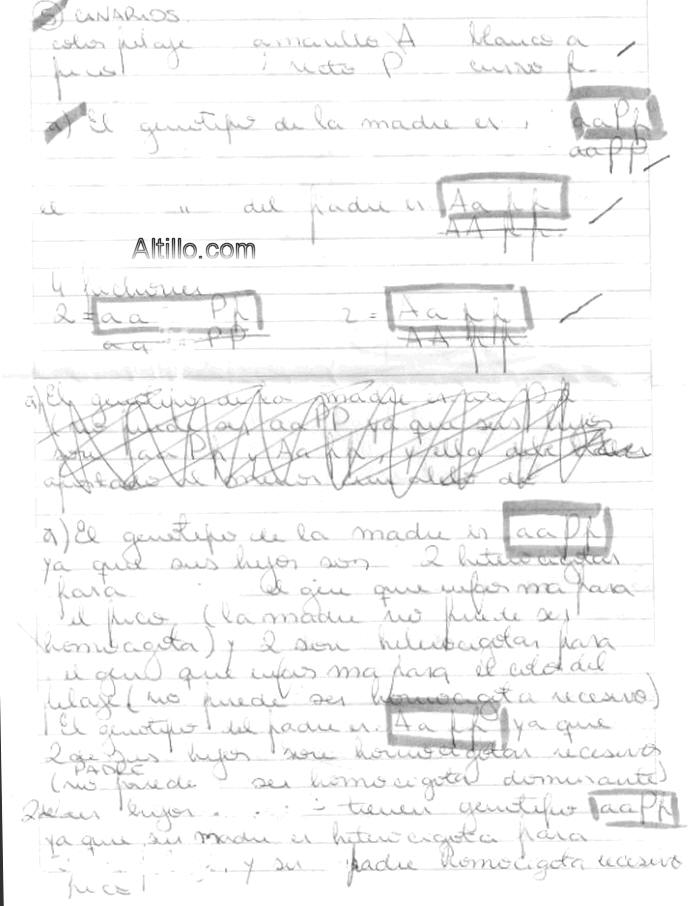 5 CANARIOS.
color pelaje amarillo A blanco a
pico : recto P curvo p.
a) El genotipo de la madre es : aaPp
aaPP
el " del padre es Aa pp
AA pp.
Altillo.com
4 pichones
2 = aa Pp 2 = Aa pp
aa PP AA pp
a) El genotipo de la madre es aaPp
no puede ser aaPP ya que sus hijos
son aaPp y Aapp, y ella debe
a) El genotipo de la madre es aaPp
ya que sus hijos son 2 heterocigotas
para el gen que informa para
el pico (la madre no puede ser
homocigota) y 2 son heterocigotas para
el gen que informa para el color del
pelaje (no puede ser homocigota recesivo)
El genotipo del padre es Aa pp ya que
2 de sus hijos son homocigotas recesivos
PADRE
(no puede ser homocigota dominante)
2 de sus hijos tienen genotipo aaPp
ya que su madre es heterocigota para
y su padre homocigota recesivo
pico